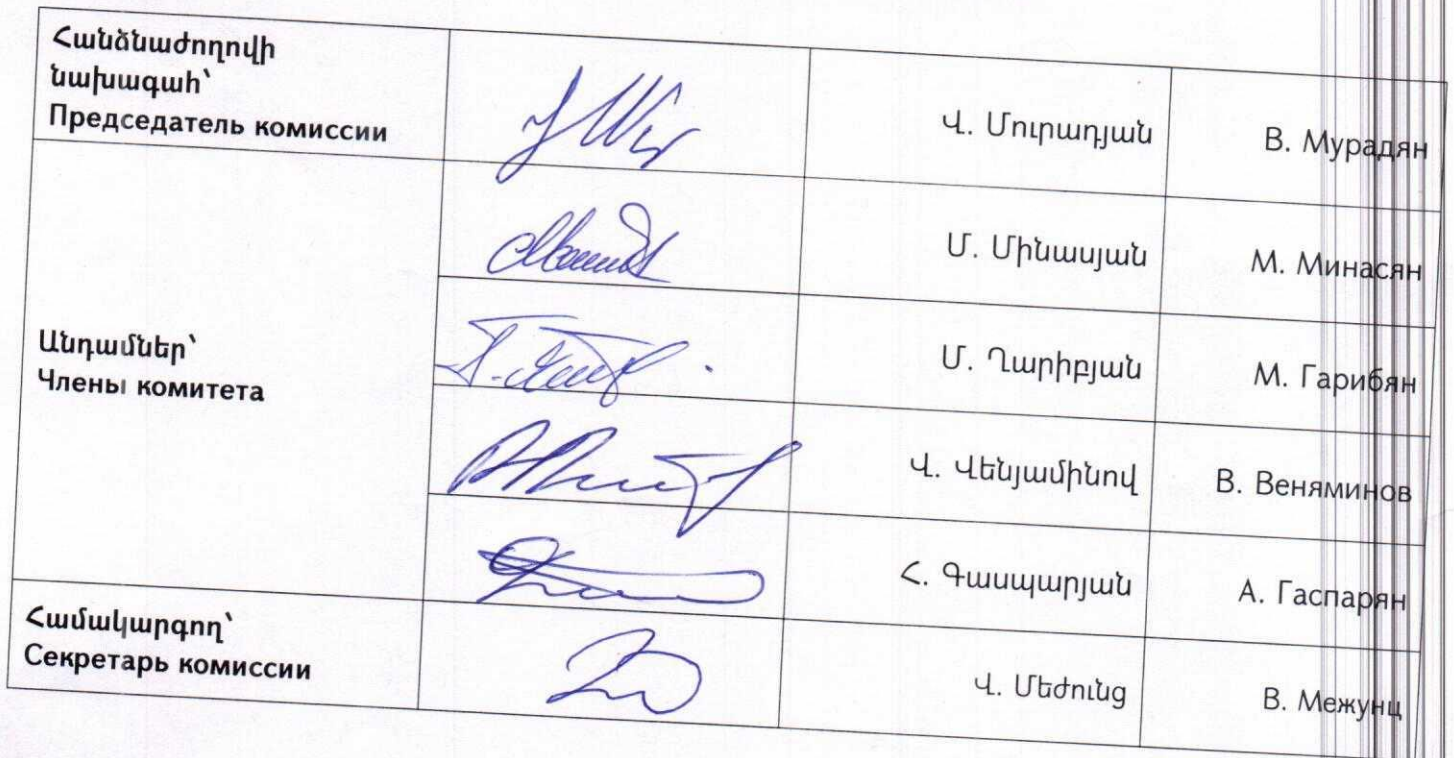 Հանձնաժողովի
նախագահ՝
Председатель комиссии
Վ. Մուրադյան
В. Мурадян
Մ. Մինասյան
М. Минасян
Անդամներ՝
Члены комитета
Մ. Ղարիբյան
М. Гарибян
Վ. Վենյամինով
В. Веняминов
Հ. Գասպարյան
А. Гаспарян
Համակարգող՝
Секретарь комиссии
Վ. Մեժունց
В. Межунц